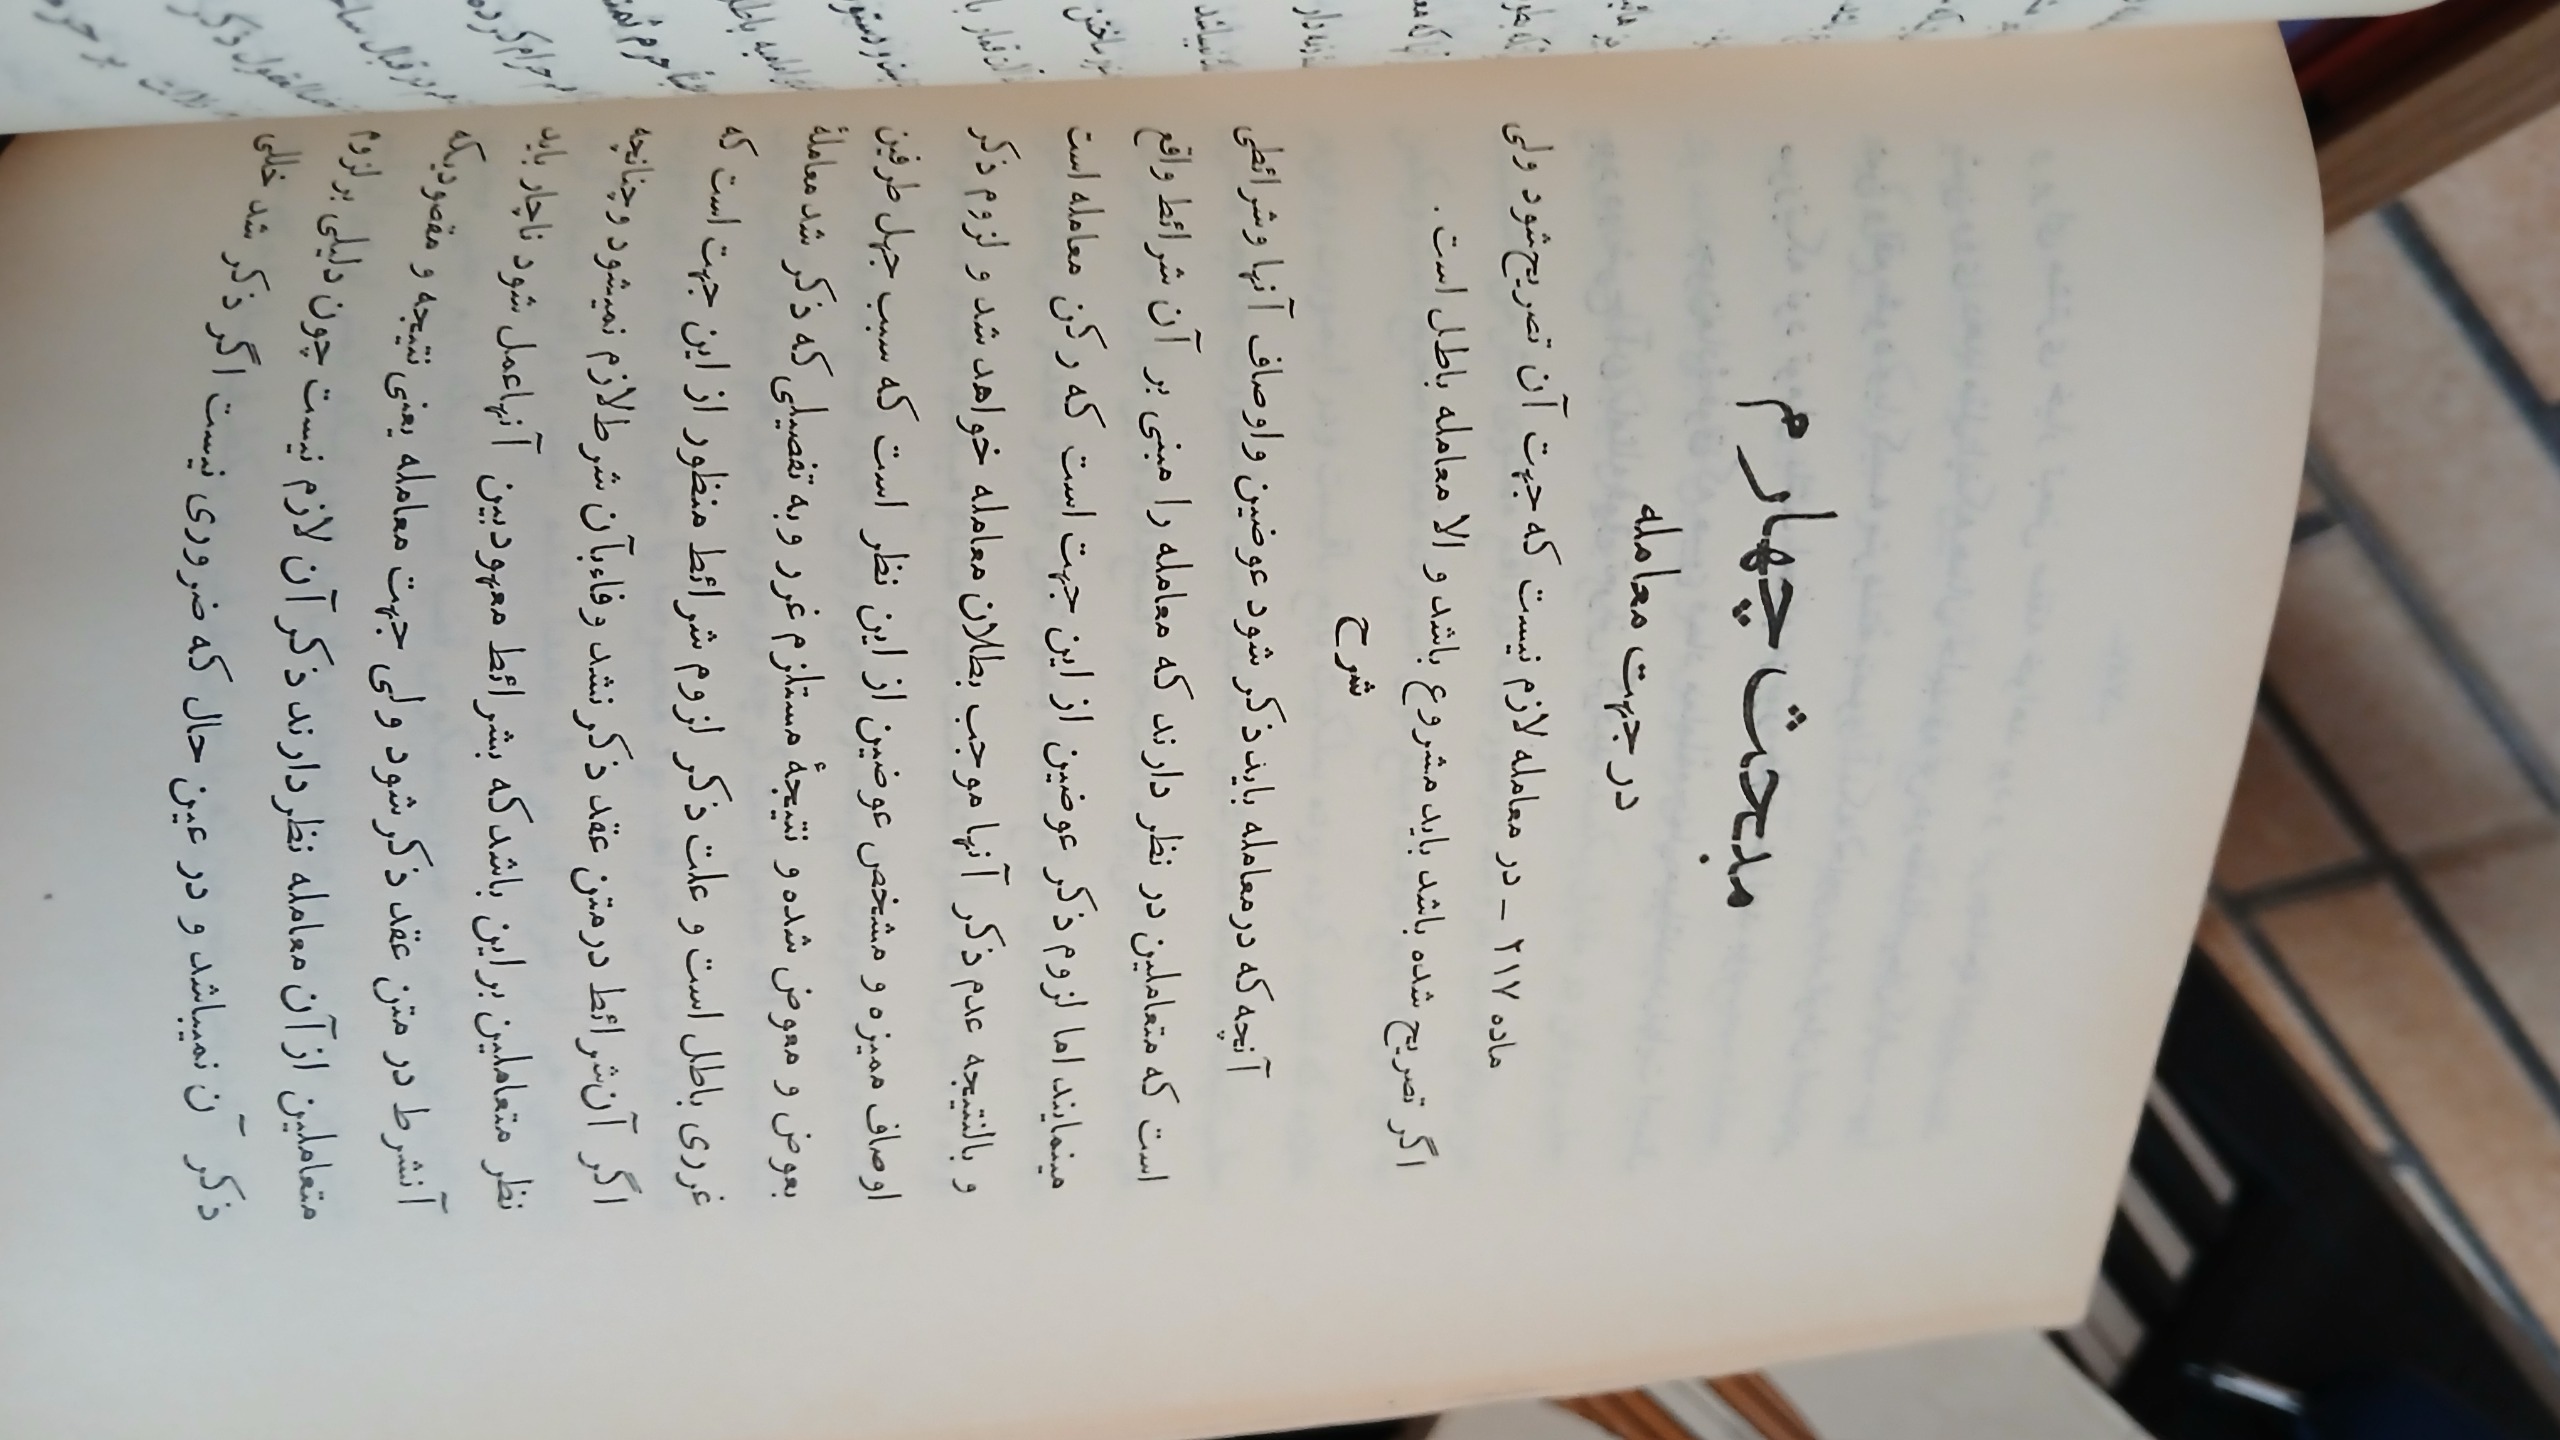 مبحث چهارم
در جهت معامله
ماده ۲۱۷ - در معامله لازم نیست که جهت آن تصریح شود ولی
اگر تصریح شده باشد باید مشروع باشد و الا معامله باطل است .
شرح
آنچه که در معامله باید ذکر شود عوضین و اوصاف آنها و شرائطی
است که متعاملین در نظر دارند که معامله را مبنی بر آن شرائط واقع
مینمایند اما لزوم ذکر عوضین از این جهت است که رکن معامله است
و بالنتیجه عدم ذکر آنها موجب بطلان معامله خواهد شد و لزوم ذکر
اوصاف ممیزه و مشخص عوضین از این نظر است که سبب جهل طرفین
بعوض و معوض شده و نتیجهٔ مستلزم غرر و به تفصیلی که ذکر شد معاملهٔ
غرری باطل است و علت ذکر لزوم شرائط منظور از این جهت است که
اگر آن شرائط در متن عقد ذکر نشد وفاء بآن شرط لازم نمیشود و چنانچه
نظر متعاملین بر این باشد که بشرائط معهود بین آنها عمل شود ناچار باید
آنشرط در متن عقد ذکر شود ولی جهت معامله یعنی نتیجه و مقصودیکه
متعاملین از آن معامله نظر دارند ذکر آن لازم نیست چون دلیلی بر لزوم
ذکر آن نمیباشد و در عین حال که ضروری نیست اگر ذکر شد خللی